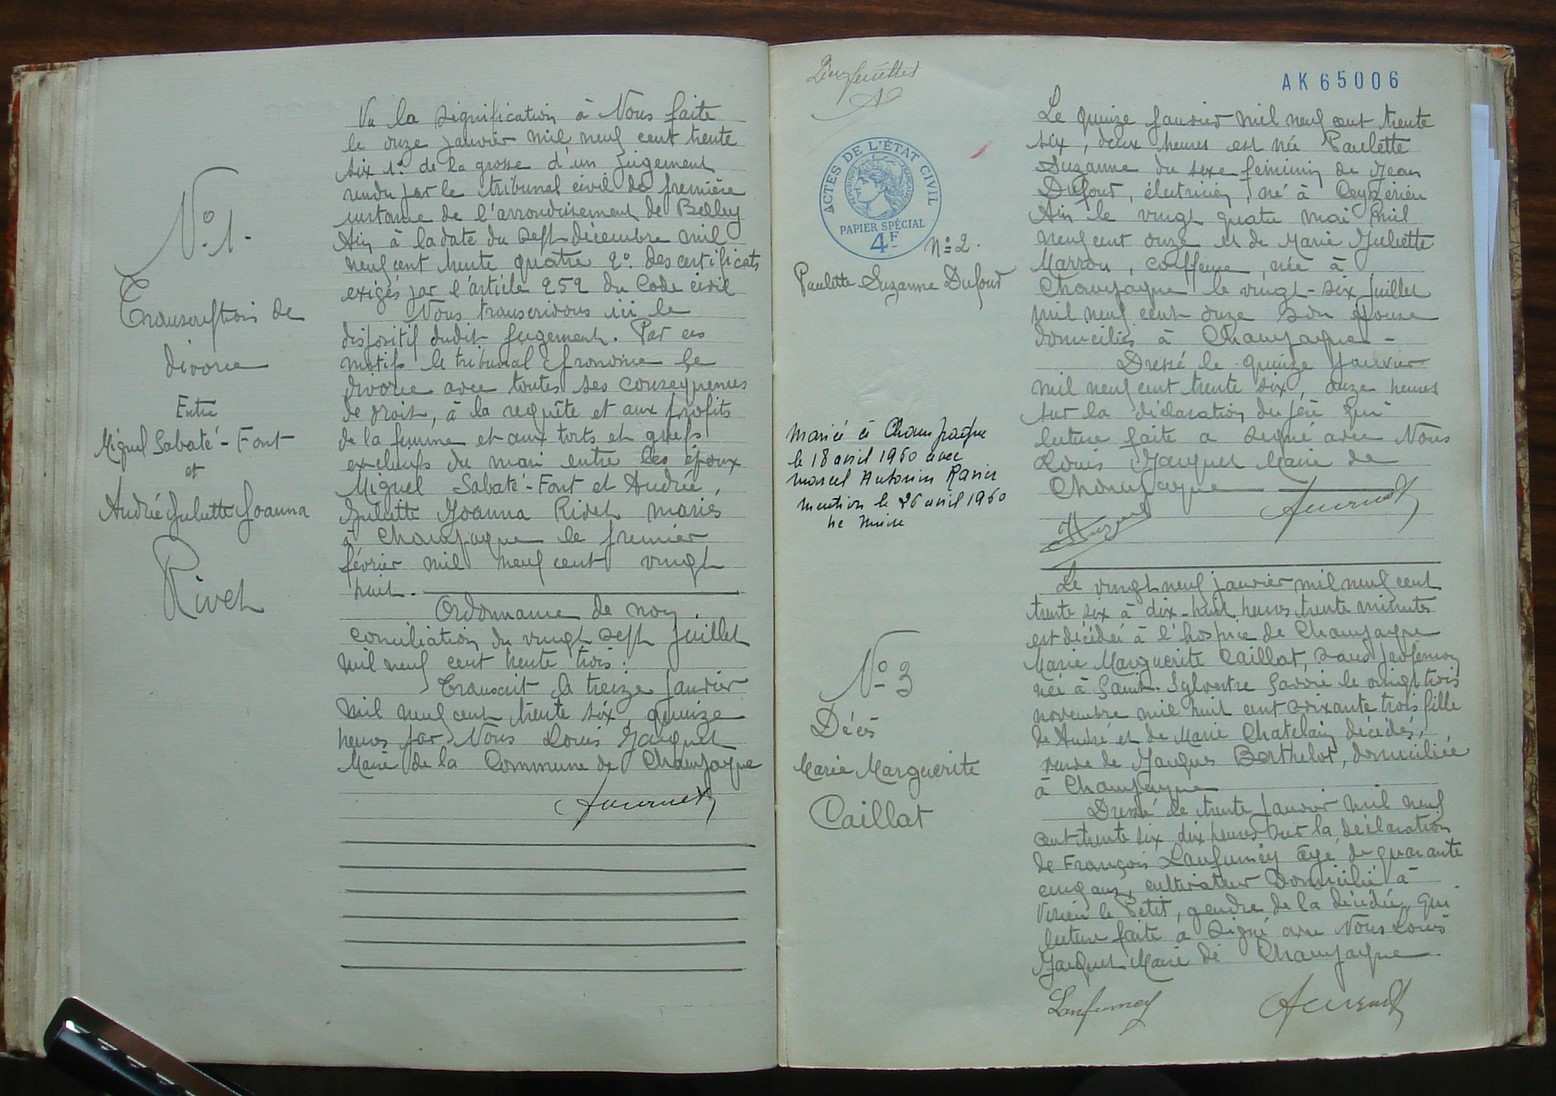 N° 1.
Transcription de
divorce
Entre
Miguel Sabaté-Font
et
Andrée Juliette Joanna
Rivet
Vu la signification à Nous faite
le onze janvier mil neuf cent trente
six 1° de la grosse d'un jugement
rendu par le tribunal civil de première
instance de l'arrondissement de Belley
Ain à la date du sept décembre mil
neuf cent trente quatre 2° des certificats
exigés par l'article 252 du Code civil
Nous transcrivons ici le
dispositif dudit jugement. Par ces
motifs le tribunal prononce le
divorce avec toutes ses conséquences
de droit, à la requête et aux profits
de la femme et aux torts et griefs
exclusifs du mari entre les époux
Miguel Sabaté-Font et Andrée,
Juliette Joanna Rivet mariés
à Champagne le premier
février mil neuf cent vingt
huit.
Ordonnance de non
conciliation du vingt sept juillet
mil neuf cent trente trois.
Transcrit le treize janvier
mil neuf cent trente six, quinze
heures par Nous Louis Jacquet
Maire de la Commune de Champagne
AK 65006
ACTES DE L'ÉTAT CIVIL
PAPIER SPÉCIAL
4F
N° 2.
Paulette Suzanne Dufour
Mariée à Champagne
le 18 avril 1960 avec
Marcel Antonin
mention le 26 avril 1960
Le Maire
Le quinze janvier mil neuf cent trente
six, deux heures est née Paulette
Suzanne du sexe féminin de Jean
Dufour, électricien, né à Ceyzérieu
Ain le vingt quatre mai mil
neuf cent onze et de Marie Juliette
Marron, coiffeuse, née à
Champagne le vingt-six juillet
mil neuf cent onze son épouse
domiciliés à Champagne -
Dressé le quinze janvier
mil neuf cent trente six, onze heures
sur la déclaration du père qui
lecture faite a signé avec Nous
Louis Jacquet Maire de
Champagne
N° 3
Décès
Marie Marguerite
Caillat
Le vingt neuf janvier mil neuf cent
trente six à dix-huit heures trente minutes
est décédée à l'hospice de Champagne
Marie Marguerite Caillat, sans profession
née à Saint-Sylvestre Savoie le vingt trois
novembre mil huit cent soixante trois fille
de André et de Marie Chatelain décédés,
veuve de Jacques Berthelot, domiciliée
à Champagne
Dressé le trente janvier mil neuf
cent trente six, dix heures sur la déclaration
de François Lanfumey âgé de quarante
cinq ans, cultivateur domicilié à
Virieu le Petit, gendre de la décédée, qui
lecture faite a signé avec Nous Louis
Jacquet Maire de Champagne.
Lanfumey